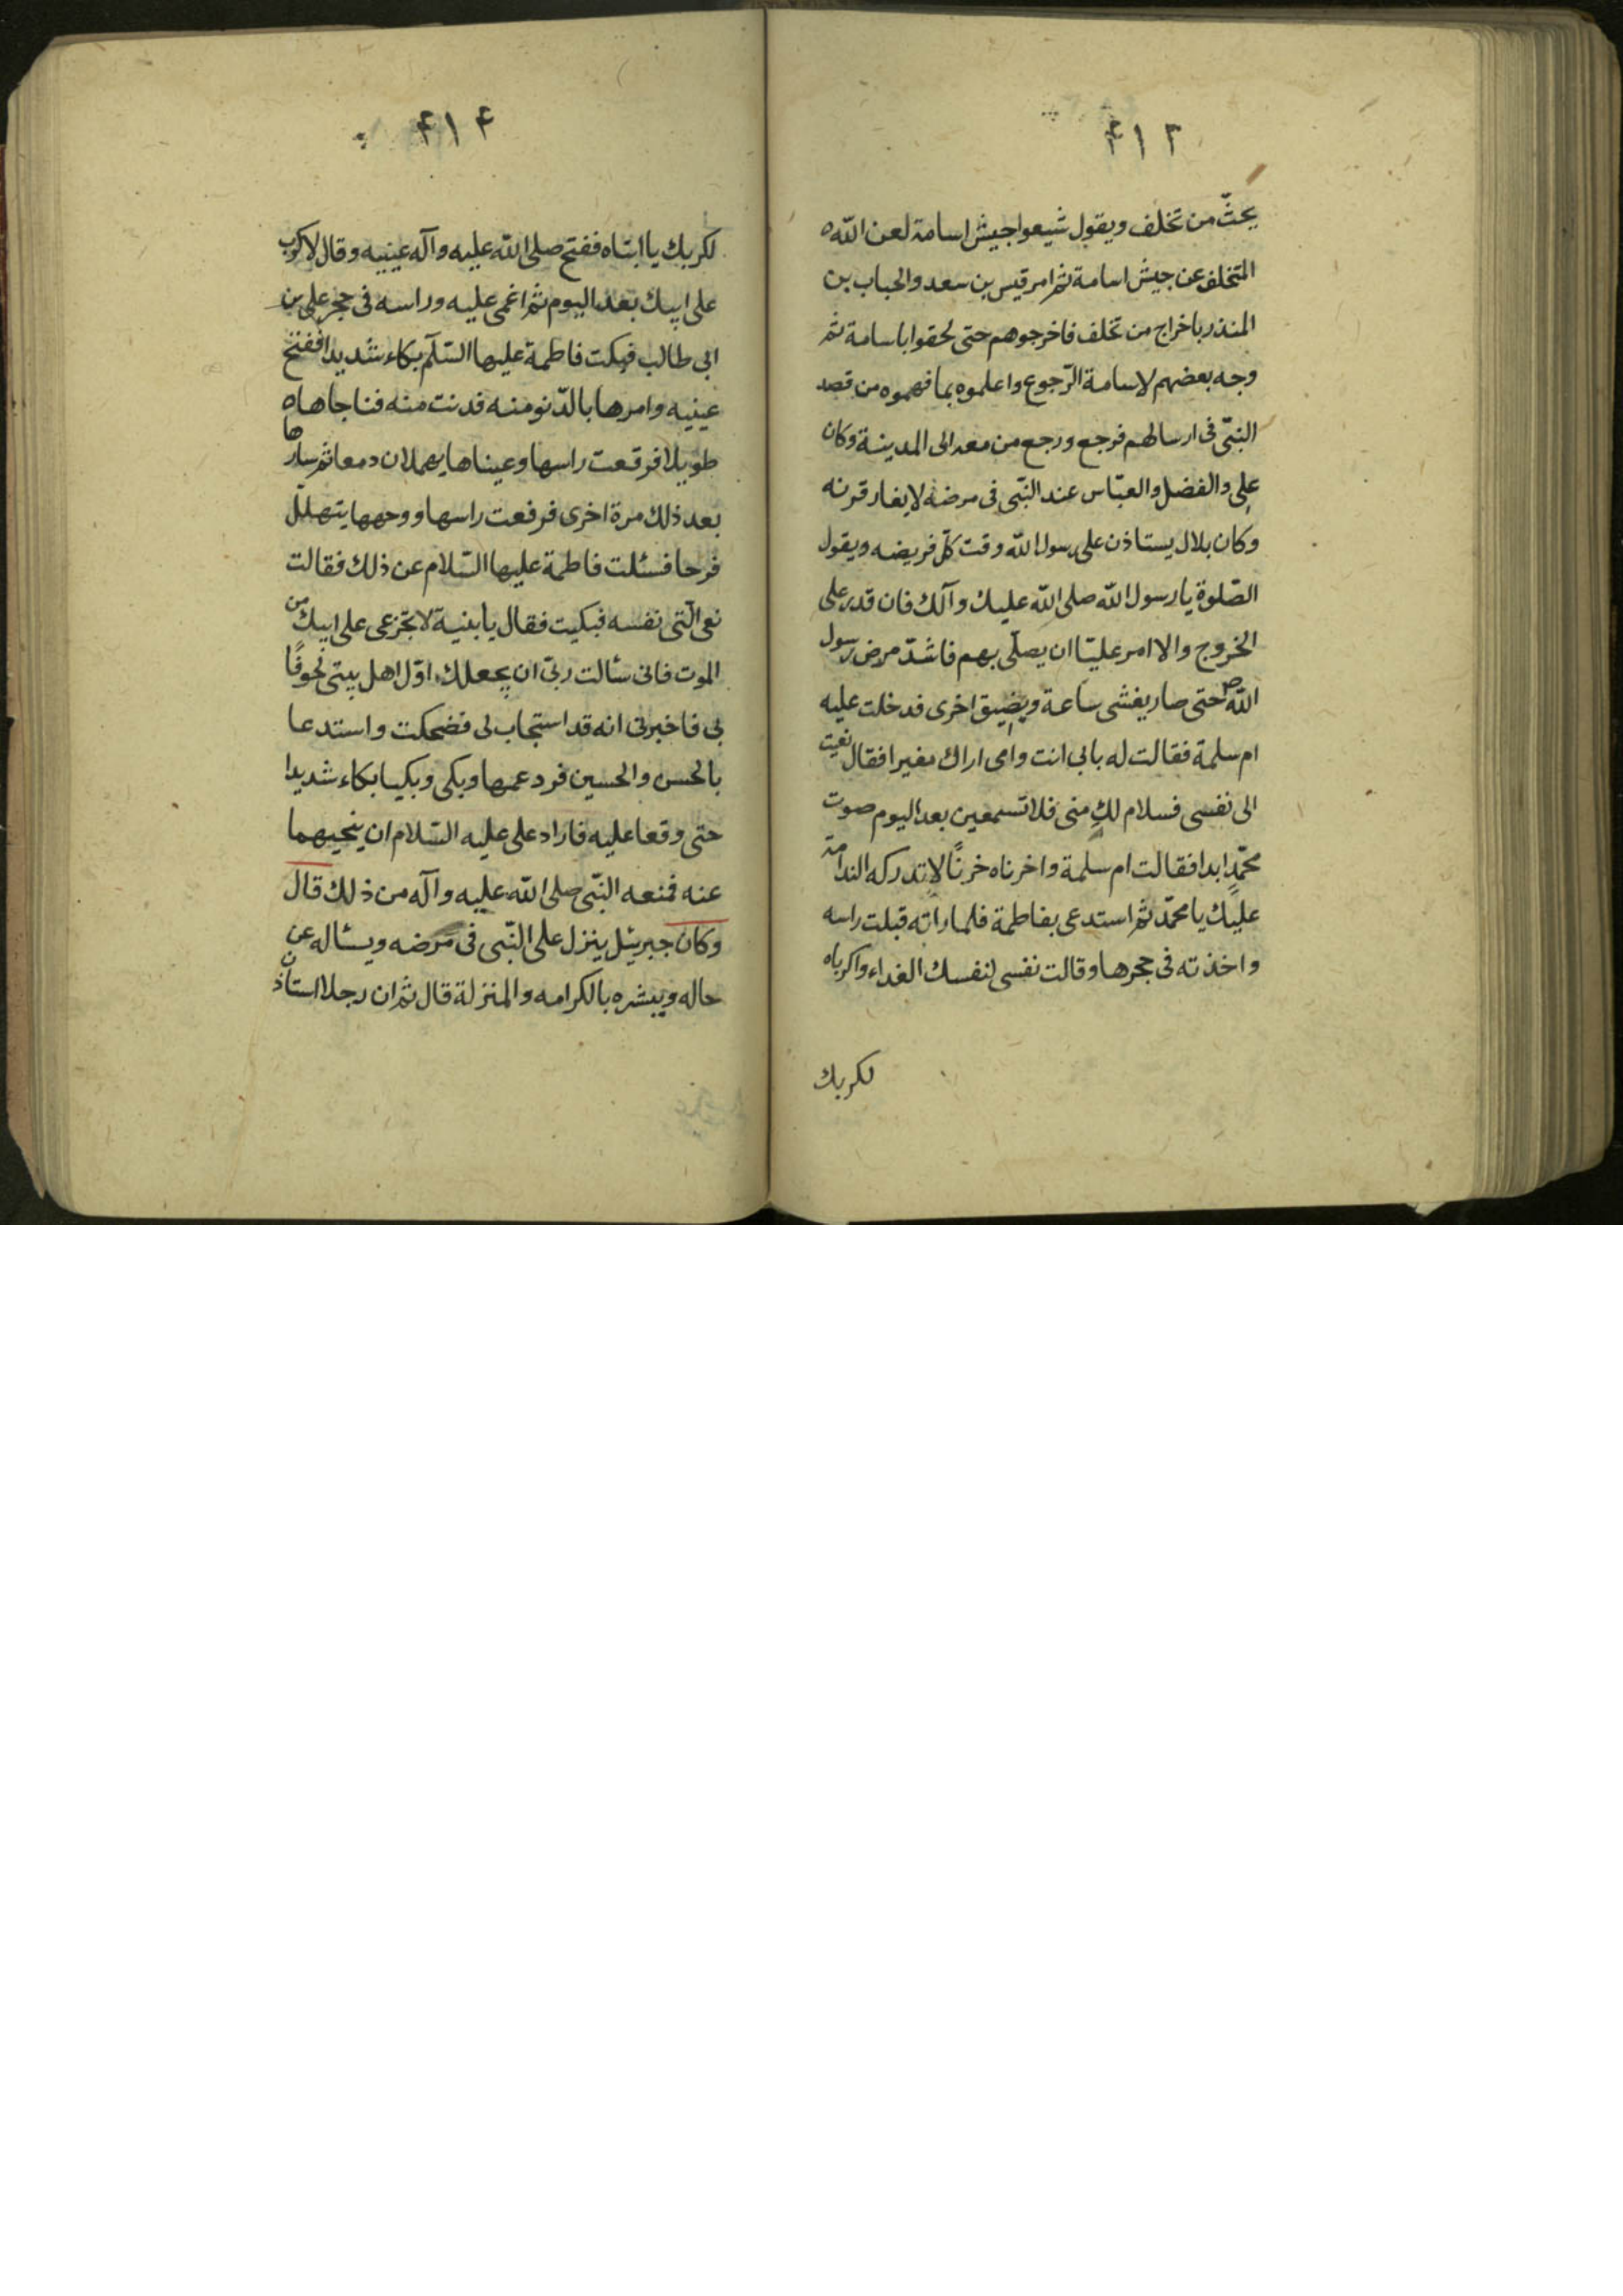 ۴۱۳
يحثّ من تخلف ويقول شيعوا جيش اسامة لعن اللّه
المتخلف عن جيش اسامة ثم امر قيس بن سعد والحباب بن
المنذر باخراج من تخلف فاخرجوهم حتى لحقوا باسامة ثم
وجه بعضهم لاسامة الرّجوع واعلموه بما فهموه من قصد
النبّى فى ارسالهم فرجع ورجع من معه الى المدينة وكان
على والفضل والعبّاس عند النبّى فى مرضه لا يفارقونه
وكان بلال يستاذن على رسول اللّه وقت كلّ فريضه ويقول
الصّلوة يا رسول اللّه صلى اللّه عليك وآلك فان قدر على
الخروج والا امر عليّا ان يصلّى بهم فاشدّ مرض رسول
اللّه ص حتى صار يغشى ساعة ويضيق اخرى فدخلت عليه
ام سلمة فقالت له بابى انت وامى اراك مغيرا فقال نعيت
الى نفسى فسلام لكِ منى فلا تسمعين بعد اليوم صوت
محمّدٍ ابدا فقالت ام سلمة واحزناه حزنًا لا تدركه الندامة
عليك يا محمّد ثم استدعى بفاطمة فلما راته قبلت راسه
واخذته فى حجرها وقالت نفسى لنفسك الفداء واكرباه
لكربك
۴۱۴
لكربك يا ابتاه ففتح صلى اللّه عليه وآله عينيه وقال لا كرب
على ابيك بعد اليوم ثم اغمى عليه وراسه فى حجر على بن
ابى طالب فبكت فاطمة عليها السّلم بكاء شديدا ففتح
عينيه وامرها بالدّنو منه فدنت منه فناجاها
طويلا فرفعت راسها وعيناها يهملان دمعا ثم سارها
بعد ذلك مرة اخرى فرفعت راسها ووجهها يتهلل
فرحا فسئلت فاطمة عليها السّلام عن ذلك فقالت
نعى الىّ نفسه فبكيت فقال يا بنية لا تجزعى على ابيك من
الموت فانى سئالت ربىّ ان يجعلك اوّل اهل بيتى لحوقًا
بى فاخبرنى انه قد استجاب لى فضحكت واستدعا
بالحسن والحسين فودعهما وبكى وبكيا بكاء شديدا
حتى وقعا عليه فاراد على عليه السّلام ان ينحيهما
عنه فمنعه النبّى صلى اللّه عليه وآله من ذلك قال
وكان جبرئيل ينزل على النبّى فى مرضه ويسئاله عن
حاله ويبشره بالكرامه والمنزلة قال ثم ان رجلا استاذن